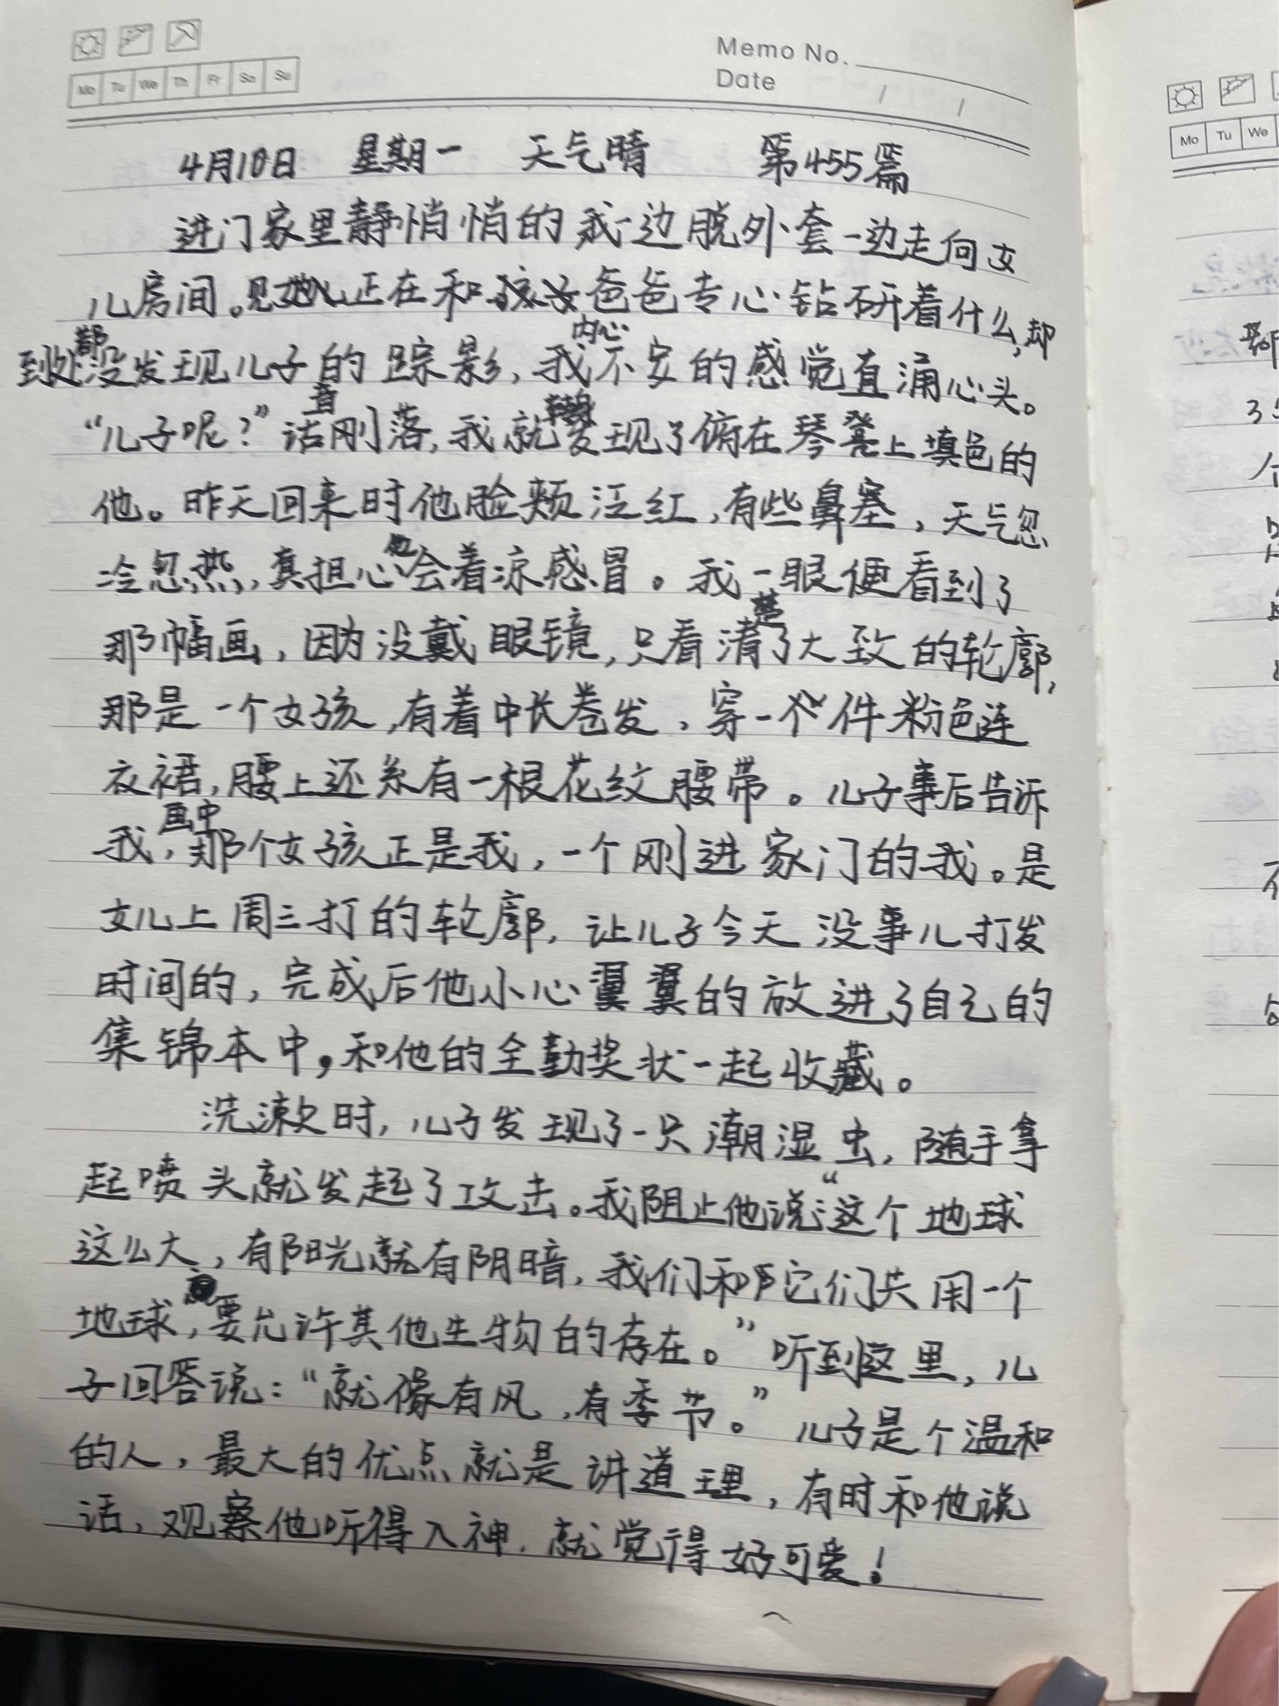 Memo No.
Mo Tu We Th Fr Sa Su
Date / /
4月10日 星期一 天气晴 第455篇
进门家里静悄悄的我一边脱外套一边走向女
儿房间。见她正在和孩子爸爸专心钻研着什么,却
到处都没发现儿子的踪影,我内心不安的感觉直涌心头。
“儿子呢?”话音刚落,我就转身发现了俯在琴凳上填色的
他。昨天回来时他脸颊泛红,有些鼻塞,天气忽
冷忽热,真担心他会着凉感冒。我一眼便看到了
那幅画,因为没戴眼镜,只看清楚了大致的轮廓,
那是一个女孩,有着中长卷发,穿一件粉色连
衣裙,腰上还系有一根花纹腰带。儿子事后告诉
我,画中那个女孩正是我,一个刚进家门的我。是
女儿上周三打的轮廓,让儿子今天没事儿打发
时间的,完成后他小心翼翼的放进了自己的
集锦本中,和他的全勤奖状一起收藏。
洗漱时,儿子发现了一只潮湿虫,随手拿
起喷头就发起了攻击。我阻止他说:“这个地球
这么大,有阳光就有阴暗,我们和它们共用一个
地球,要允许其他生物的存在。”听到这里,儿
子回答说:“就像有风,有季节。”儿子是个温和
的人,最大的优点就是讲道理,有时和他说
话,观察他听得入神,就觉得好可爱!
Mo Tu We